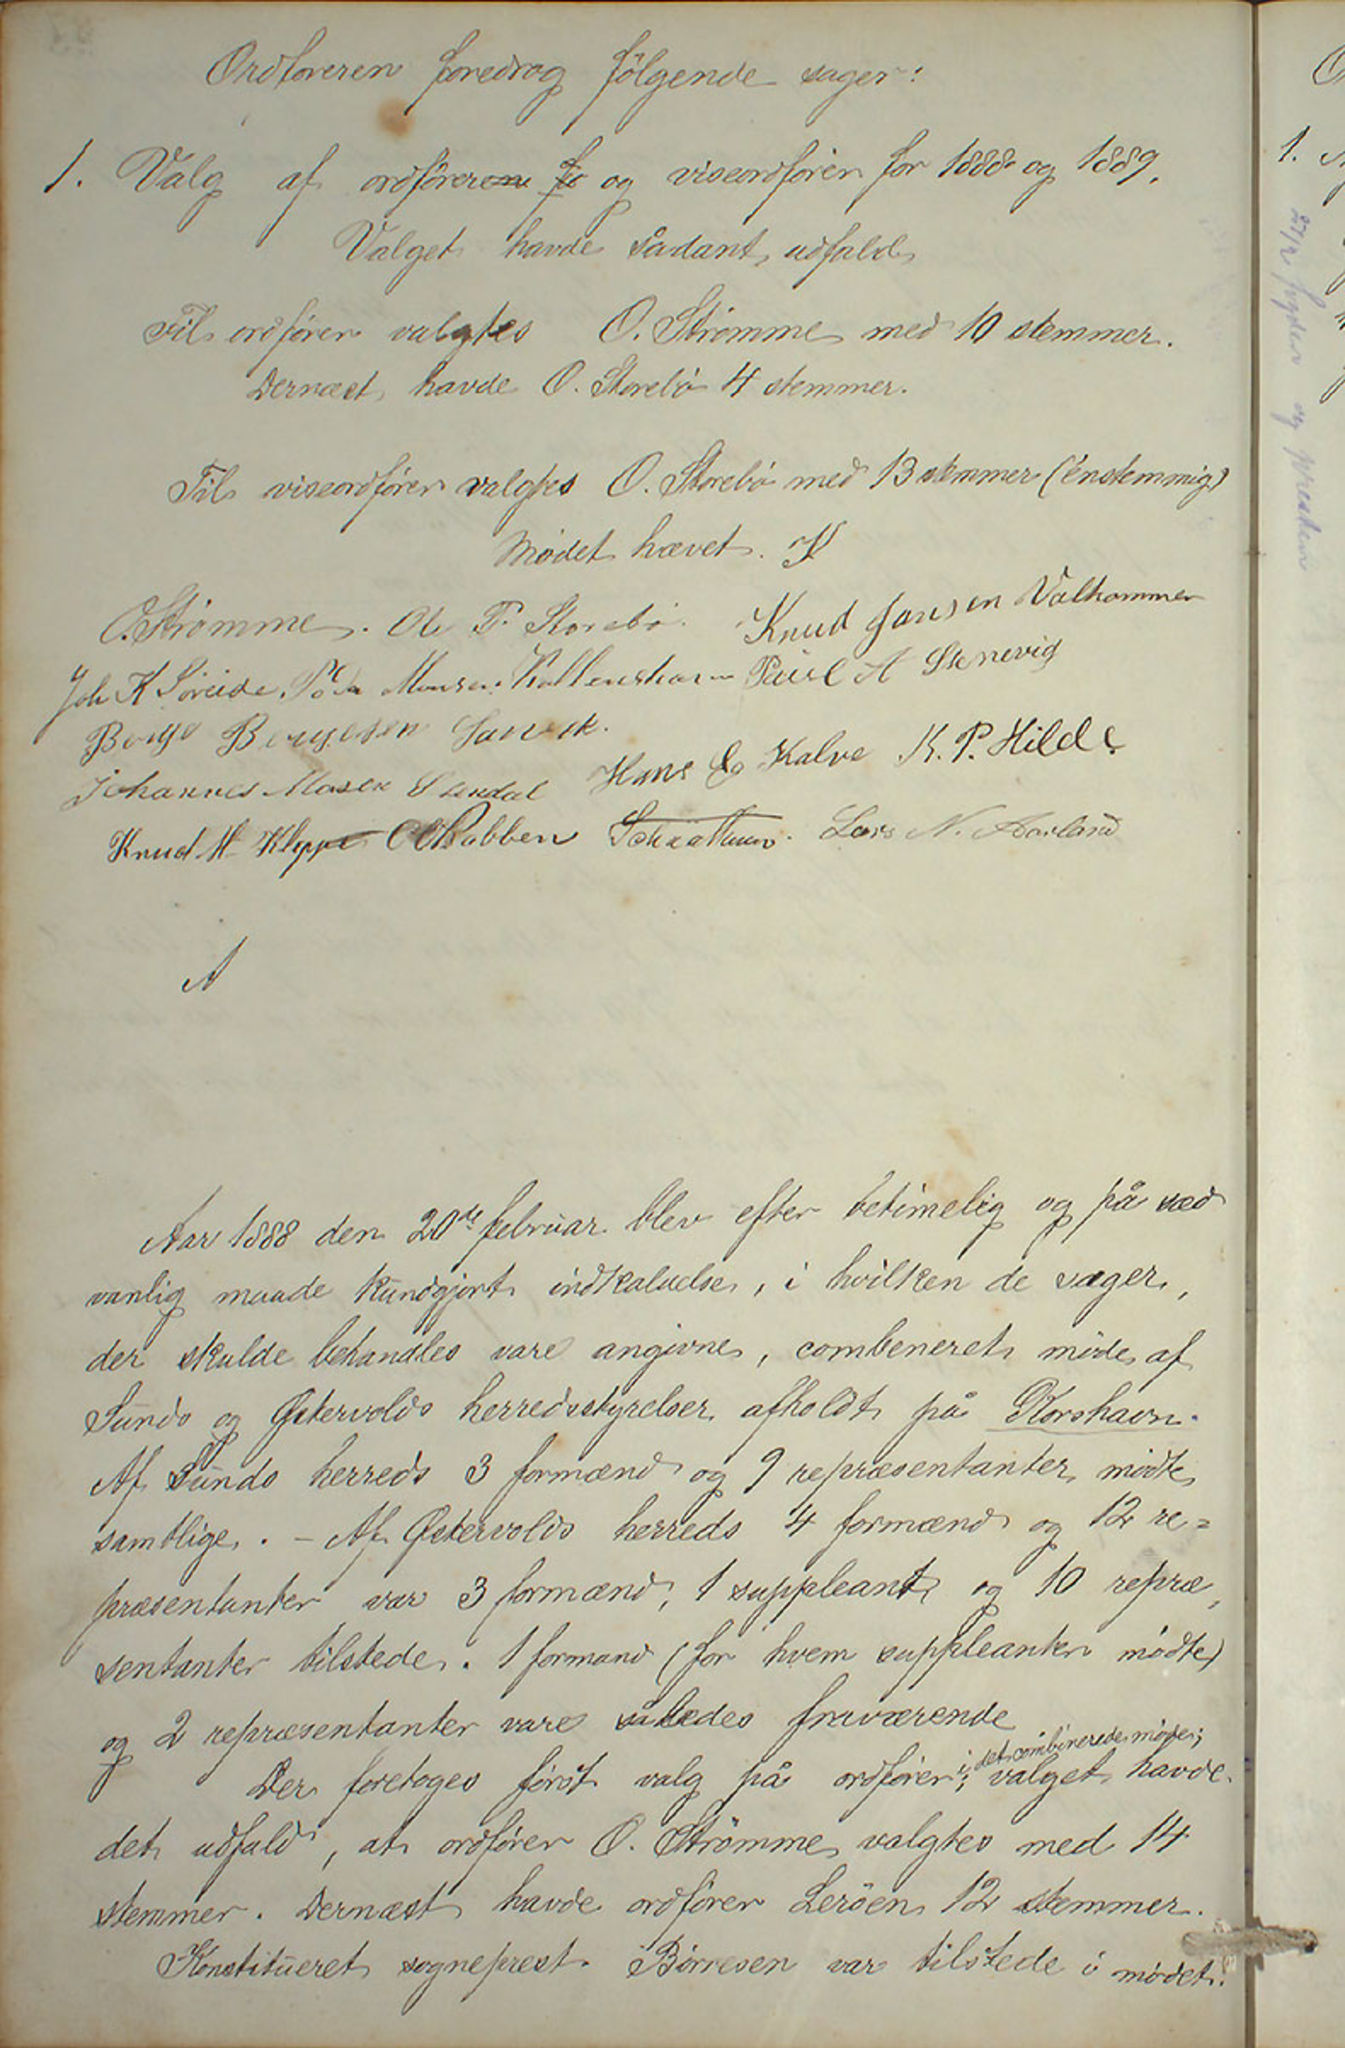 Ordføreren foredrog følgende sager:
1. Valg af ordføreren fo og viseordfører for 1888 og 1889.
Valget havde sådant udfald
Til ordfører valgtes O. Strømme med 10 stemmer.
Dernæst havde O. Storebø 4 stemmer.
Til viseordfører valgtes O. Storebø med 13 stemmer (énstemmig)
Mødet hævet.
O. Strømme. Ole T. Storebø. Knud Jansen Valhammer
Joh K Søreide. Peder Monsen Kallenshavn Paul A Stenevig
Børge Børgesen
Johannes Mosen Hans Kalve K. P. Hilde
Knud M Kleppe Rabben Lars N. Aarland
A
Aar 1888 den 20de februar blev efter betimelig og på sæd
vanlig maade kundgjort indkaldelse, i hvilken de sager,
der skulde behandles vare angivne, combeneret møde af
Sunds og Østervolds herredsstyrelser afholdt på Korshavn.
Af Sunds herreds 3 formænd og 9 repræsentanter mødte
samtlige. - Af Østervolds herreds 4 formænd og 12 re=
præsentanter var 3 formænd, 1 suppleant og 10 repræ,
sentanter tilstede. 1 formand (for hvem suppleanten mødte)
og 2 repræsentanter vare således fraværende
i det combinerede møde;
Der foretoges først valg på ordfører; valget havde
det udfald, at ordfører O. Strømme valgtes med 14
stemmer. Dernæst havde ordfører Lerøen 12 stemmer.
Konstitueret sogneprest Børresen var tilstede i mødet.
1.
og presten